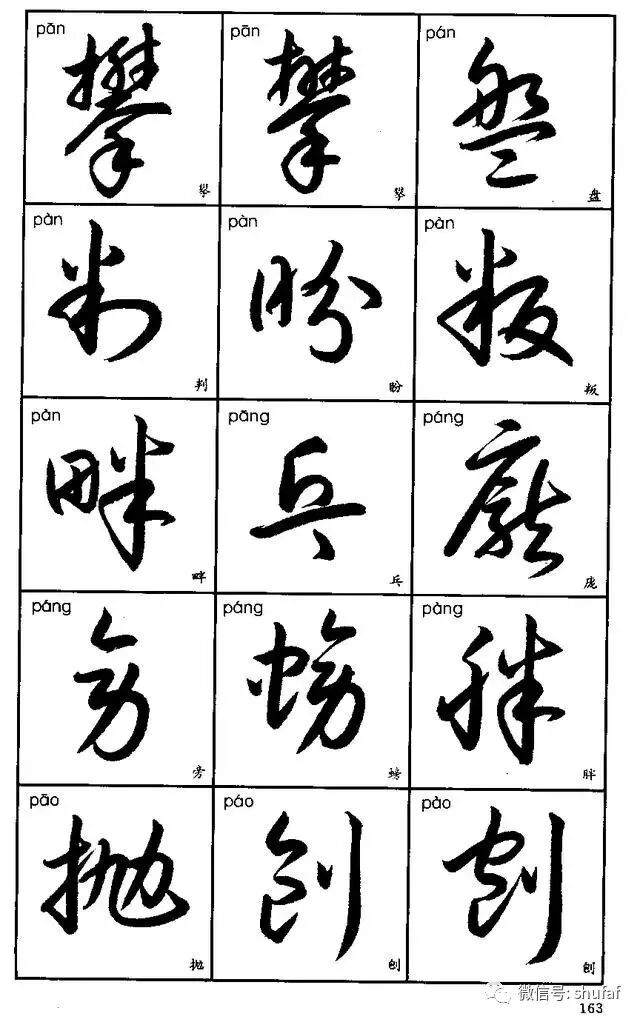 pān pān pán
攀 攀 盤
攀 攀 盘
pàn pàn pàn
判 盼 叛
判 盼 叛
pàn pāng páng
畔 乓 龐
畔 乓 庞
páng páng pàng
旁 螃 胖
旁 螃 胖
pāo páo pào
拋 刨 刨
抛 刨 刨
微信号: shufaf
163